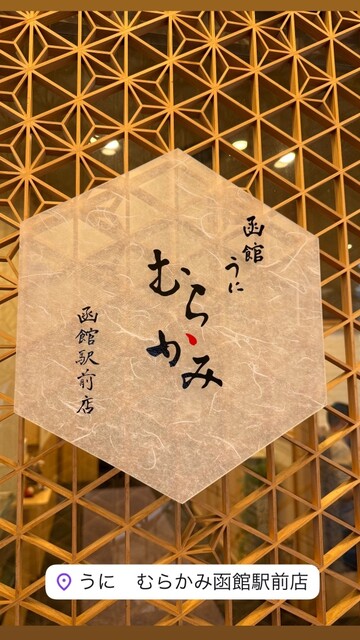 函館
うに
むらかみ
函館駅前店
うに　むらかみ函館駅前店